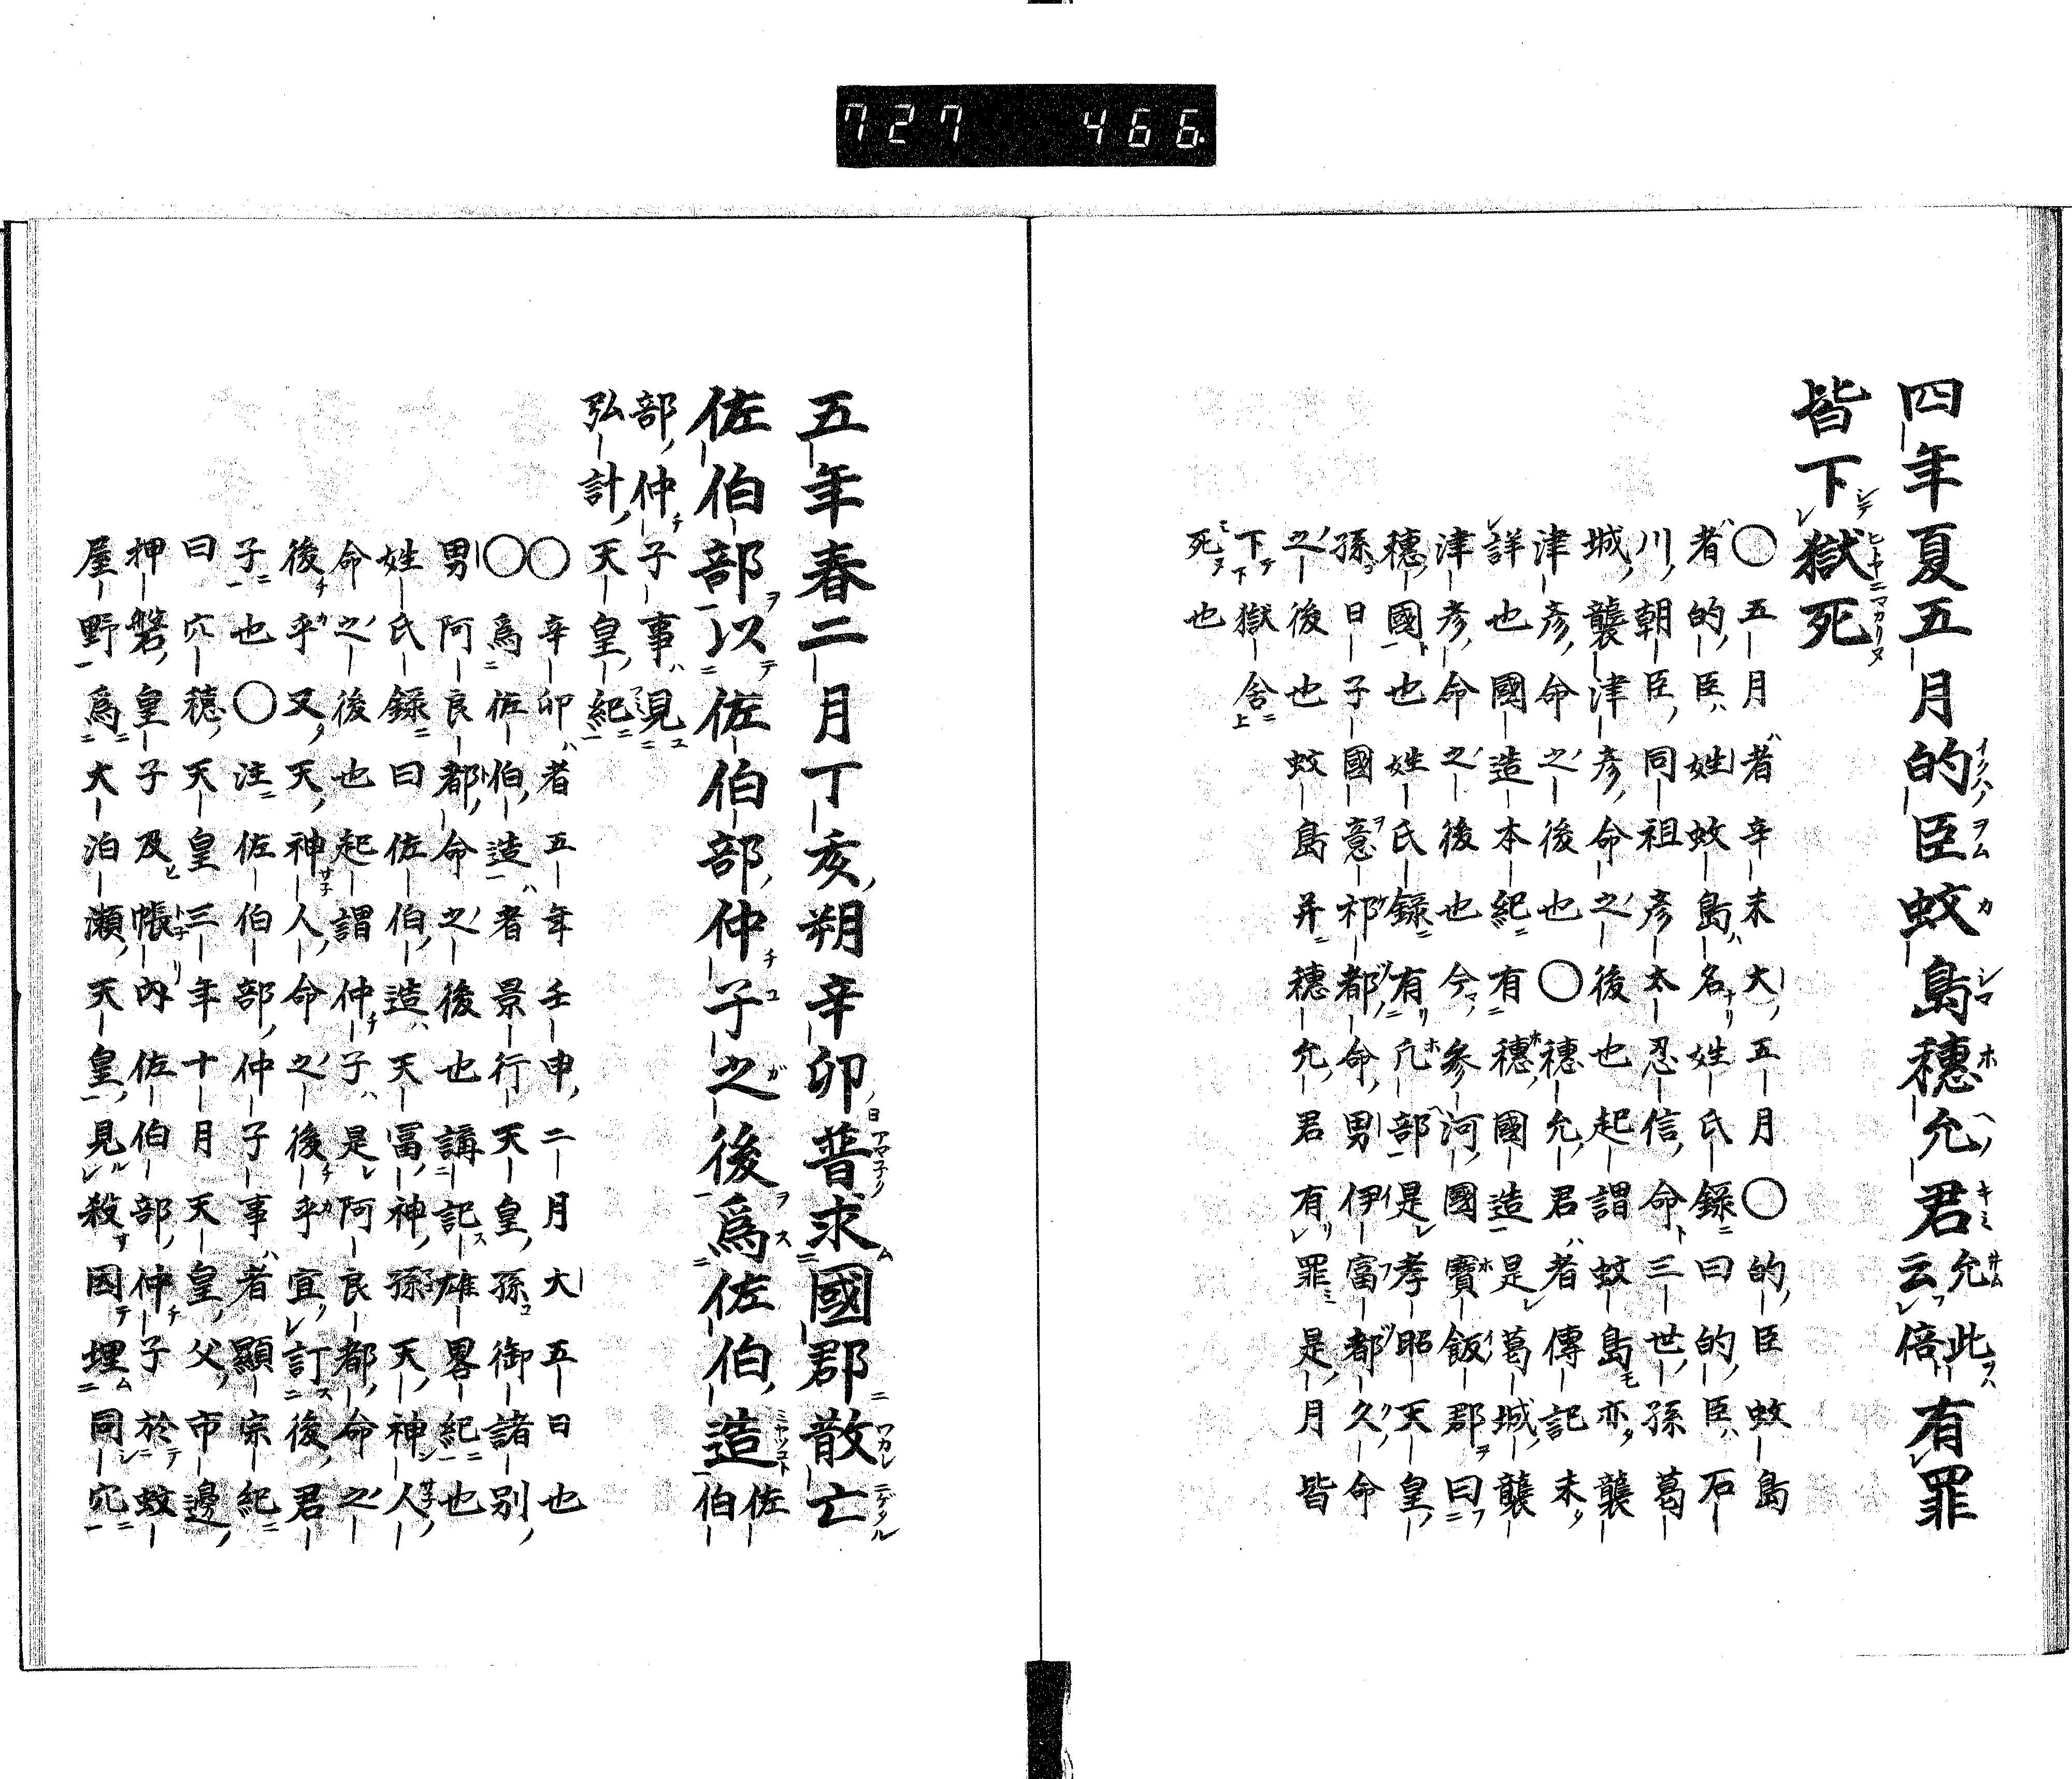 727 466
四年夏五月的臣蚊島穂允君允此云倍有罪
皆下獄死
〇五月者辛未大五月〇的臣蚊島
者的臣姓蚊島名姓氏録曰的臣石
川朝臣同祖彦太忍信命三世孫葛
城襲津彦命之後也起謂蚊島亦襲
津彦命之後也〇穂允君者傳記未
詳也國造本紀有穂國造是葛城襲
津彦命之後也今参河國寶飯郡曰
穂國也姓氏録有凢部是孝昭天皇
孫日子國意祁都命男伊富都久命
之後也蚊島并穂允君有罪是月皆
下獄舎
死也
五年春二月丁亥朔辛卯普求國郡散亡
佐伯部以佐伯部仲子之後爲佐伯造佐伯
部仲子事見
弘計天皇紀
〇辛卯者五年壬申二月大五日也
〇爲佐伯造者景行天皇孫御諸別
男阿良都命之後也講記雄畧紀也
姓氏録曰佐伯造天冨神孫天神人
命之後也起謂仲子是阿良都命之
後乎又天神人命之後乎宜訂後君
子也〇注佐伯部仲子事者顯宗紀
曰穴穂天皇三年十月天皇父市邊
押磐皇子及帳内佐伯部仲子於蚊
屋野爲大泊瀬天皇見殺因埋同穴